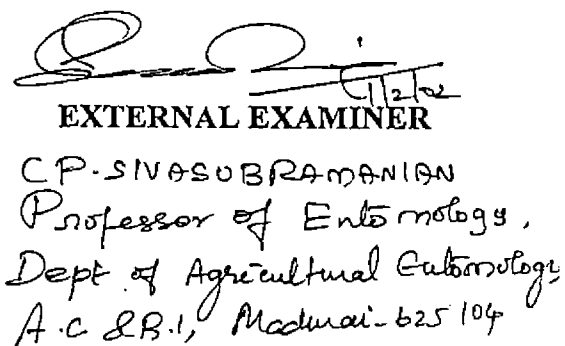 1/2/02
EXTERNAL EXAMINER
C P. SIVASUBRAMANIAN
Professor of Entomology,
Dept. of Agricultural Entomology,
A.C & R.I, Madurai-625 104